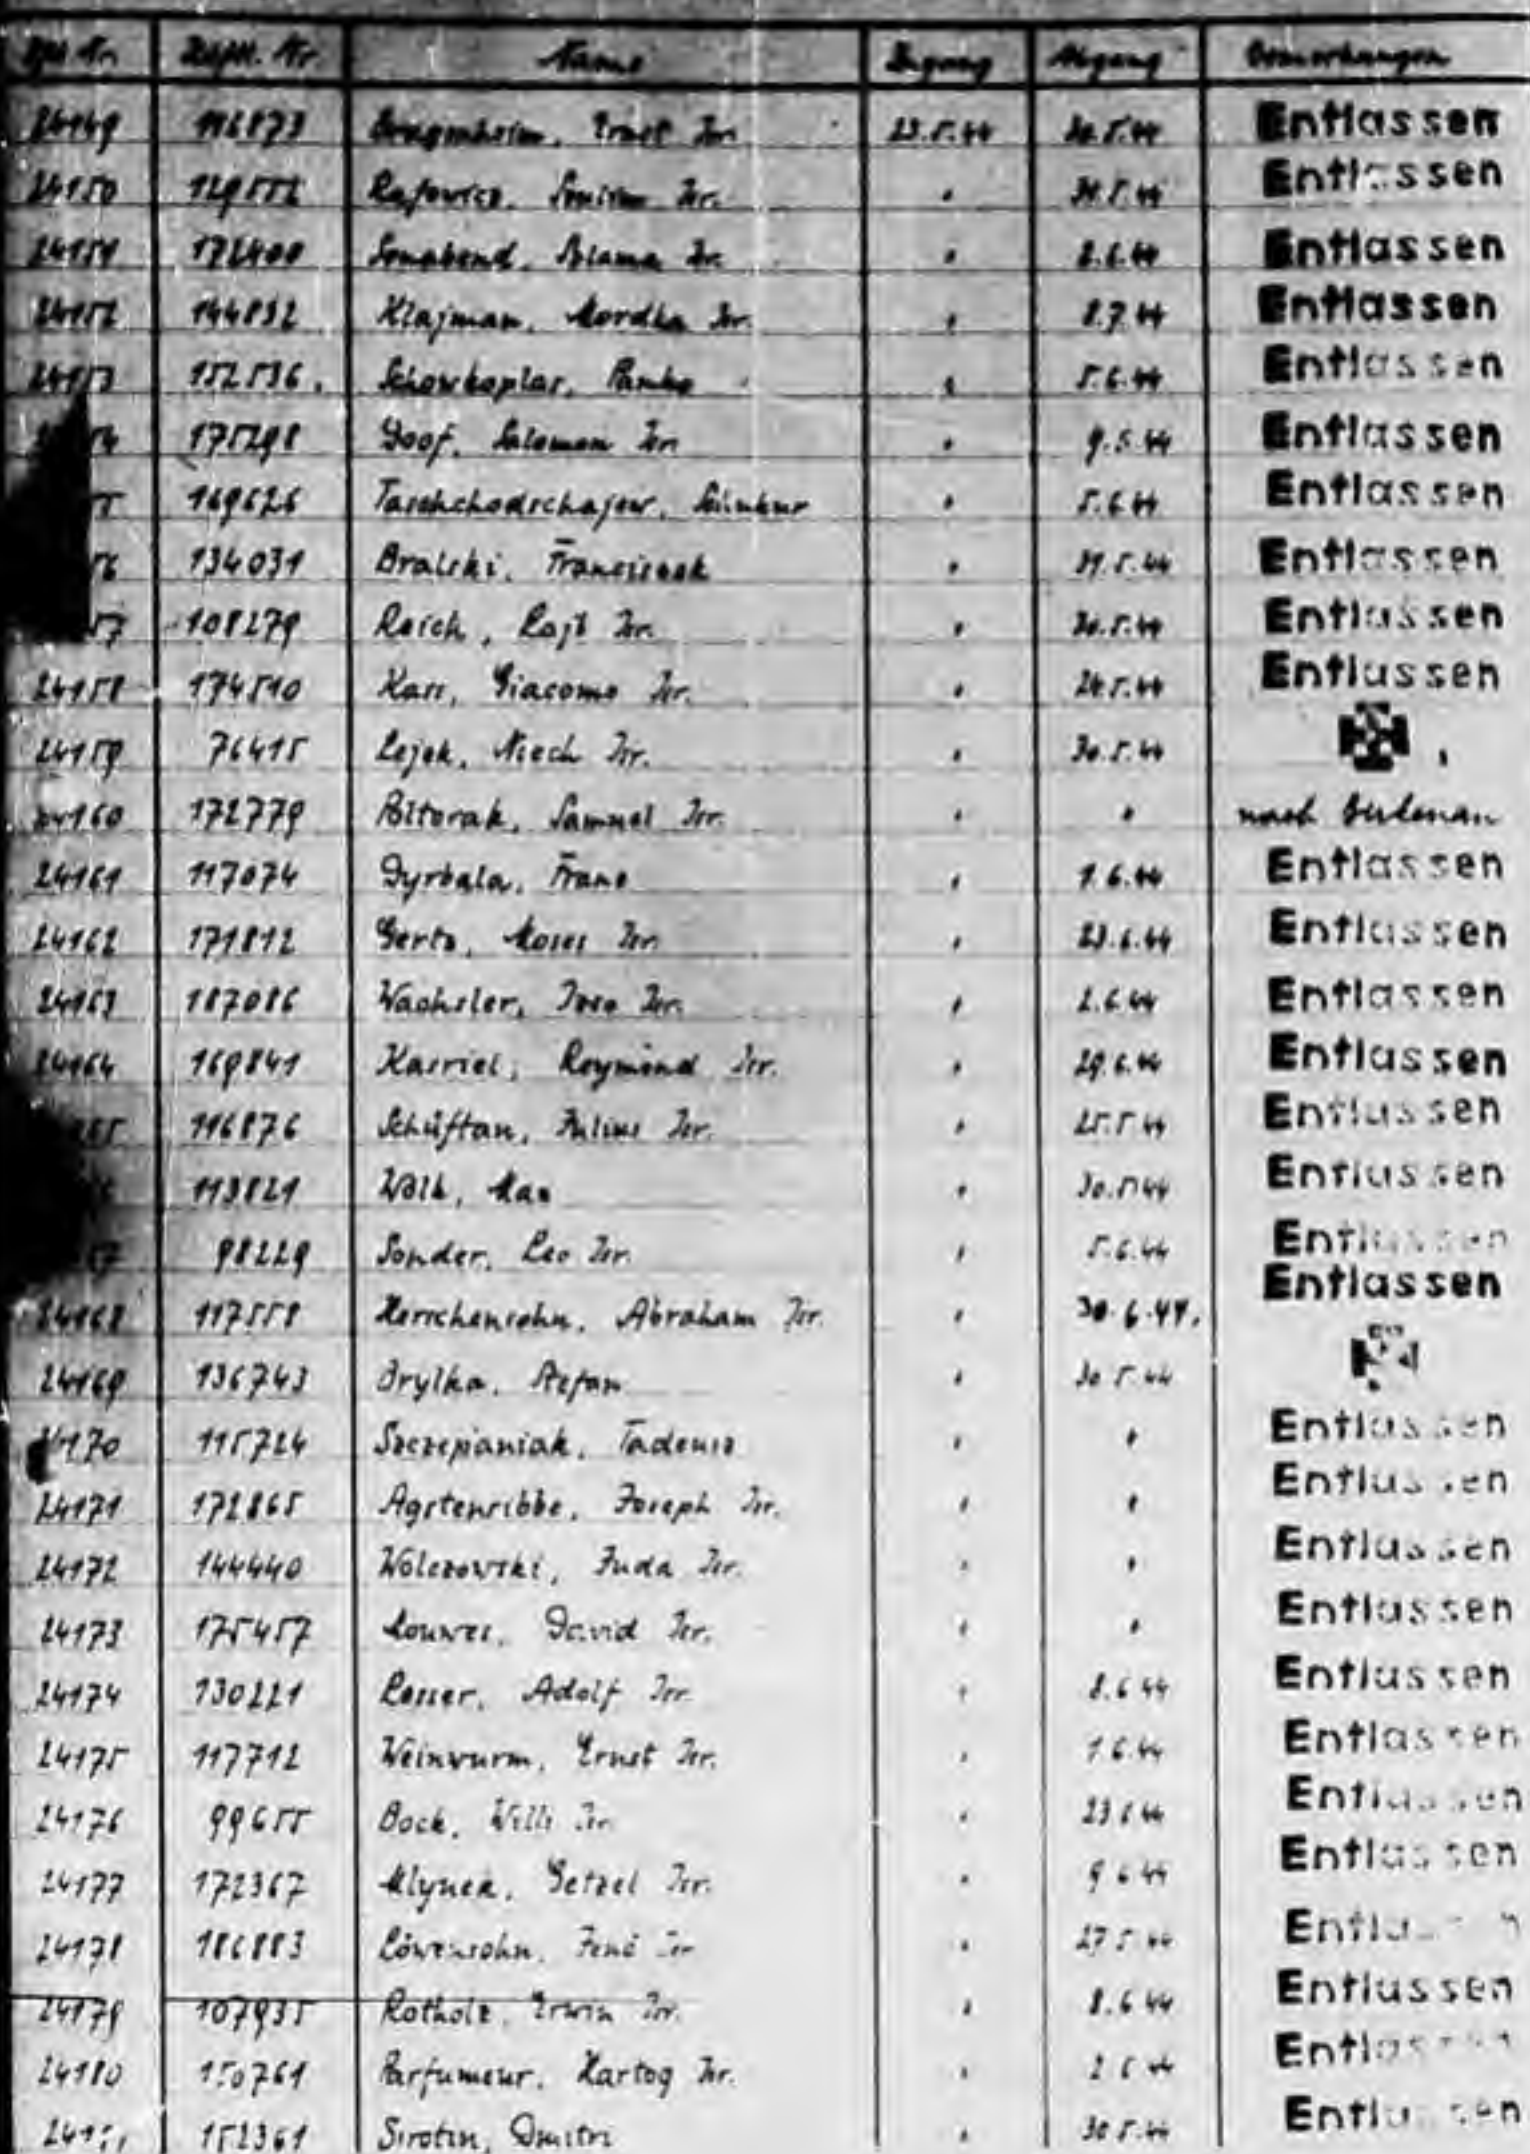 Häftl. Nr. Name Zugang Abgang Bemerkungen
24149 112873 Ernst Isr. 23.5.44 30.5.44 Entlassen
24150 129552 Rafowicz, Isr. " 31.5.44 Entlassen
24151 172400 Sonabend, Szlama Isr. " 2.6.44 Entlassen
24152 144832 Klajman, Mordka Isr. " 8.7.44 Entlassen
24153 152536. Schowkoplas, " 5.6.44 Entlassen
54 175298 Goof, Salomon Isr. " 9.5.44 Entlassen
55 169626 Taschchodschajew, " 5.6.44 Entlassen
56 134031 Bralski, Franciszek " 31.5.44 Entlassen
57 108279 Reich, Rajt Isr. " 30.5.44 Entlassen
24158 174510 Karr, Giacomo Isr. " 24.5.44 Entlassen
24159 76415 Lejek, Isr. " 30.5.44
24160 172779 Pitorak, Samuel Isr. " " nach Birkenau
24161 117074 Gyrbala, Franc " 1.6.44 Entlassen
24162 171812 Gerts, Moses Isr. " 23.6.44 Entlassen
24163 187086 Wachsler, Isr. " 2.6.44 Entlassen
24164 169841 Karriel, Reymond Isr. " 29.6.44 Entlassen
65 116876 Schüftan, Julius Isr. " 25.5.44 Entlassen
113821 Wolk, Max " 30.5.44 Entlassen
67 98229 Sonder, Leo Isr. " 5.6.44 Entlassen
24168 117558 Herrchensohn, Abraham Isr. " 30.6.44. Entlassen
24169 136743 Brylka, Stefan " 30.5.44
24170 115724 Szczepaniak, Tadeusz " " Entlassen
24171 172865 Agstenribbe, Joseph Isr. " " Entlassen
24172 144440 Wolczowski, Juda Isr. " " Entlassen
24173 175457 Louwes, David Isr. " " Entlassen
24174 130221 Lesser, Adolf Isr. " 8.6.44 Entlassen
24175 117712 Weinwurm, Ernst Isr. " 1.6.44 Entlassen
24176 99655 Bock, Willi Isr. " 23.6.44 Entlassen
24177 172367 Mlynek, Getzel Isr. " 9.6.44 Entlassen
24178 186883 Löwensohn, Jenö Isr. " 27.5.44 Entlassen
24179 107935 Rotholz, Erwin Isr. " 8.6.44 Entlassen
24180 150761 Parfumeur, Hartog Isr. " 2.6.44 Entlassen
152361 Sirotin, Dmitri " 30.5.44 Entlassen